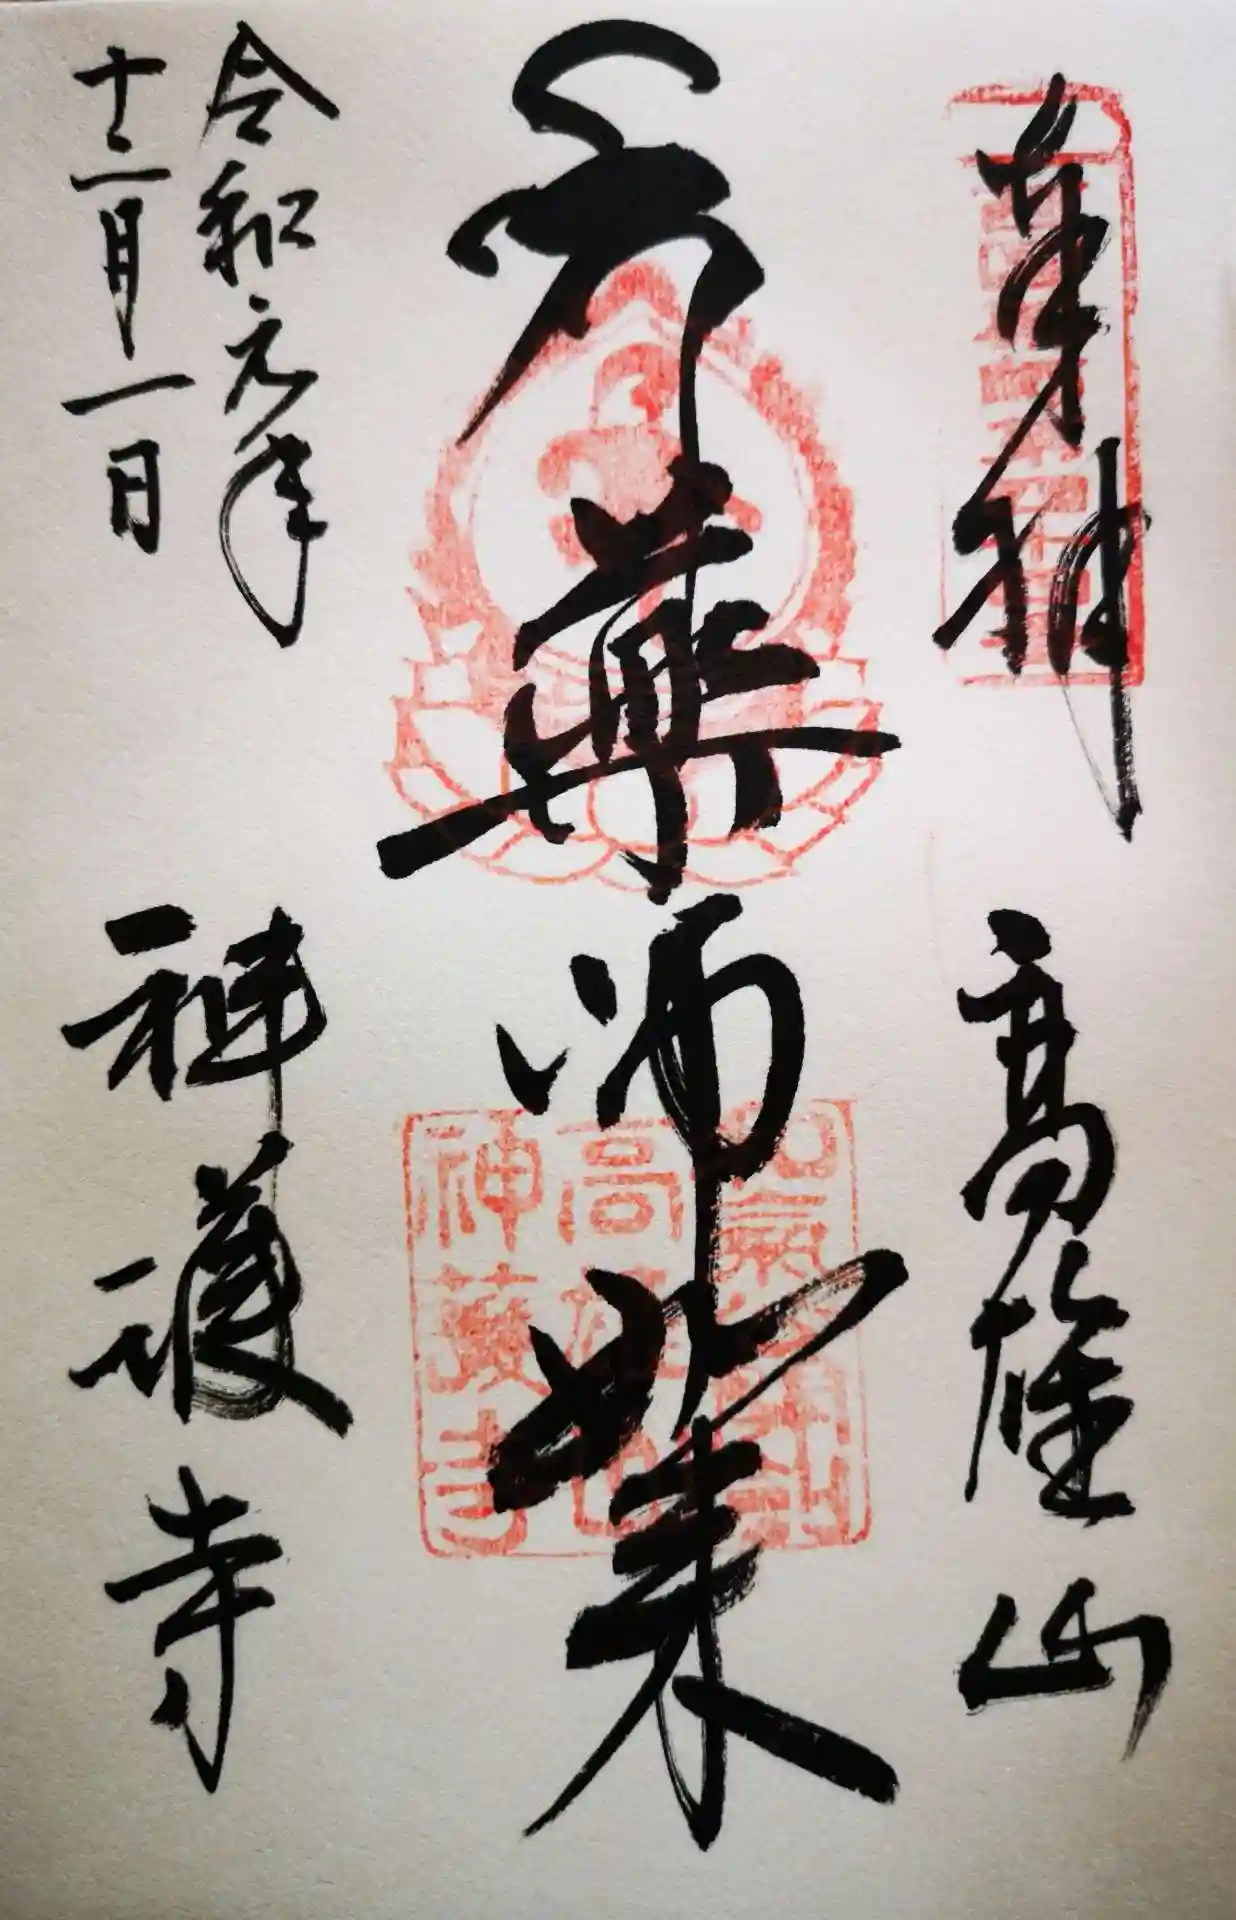 奉拝
高雄山
薬師如来
令和元年
十二月一日
神護寺
高雄山
神護寺